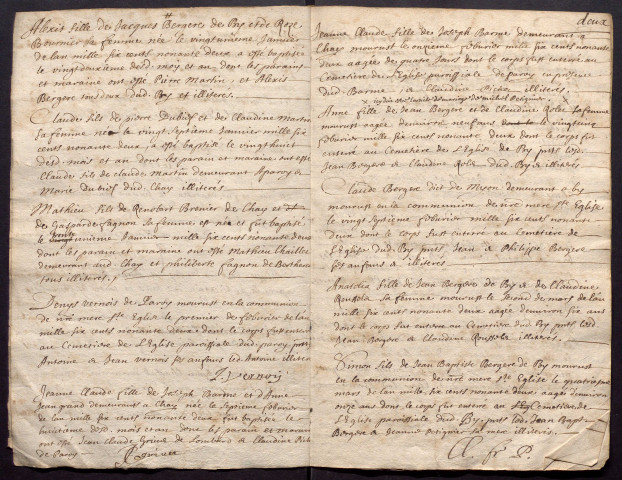 Alexit fille de Jacques Bergere de By et de Roze
Bournier sa femme née le vingtunieme Janvier
de lan mille six cents nonante deux a esté baptisée
le vingt deuxieme desd. moy et an dont les parains
et maraine ont esté Pierre Martin, et Alexis
Bergere tous deux dud. By et illiteres.
Claude fils de pierre Dubief et de Claudine Martin
sa femme né le vingt septieme Janvier mille six
cents nonante deux, a esté baptisé le vingt huict
desd. mois et an dont les parain et maraine ont esté
Claude fils de claude Martin demeurant a paroy et
Marie Dubief dud. Chay illiteres
Mathieu fils de Brenier de Chay et
de Gasparde fagnon sa femme est né et fut baptisé
le trente
unieme Janvier mille six cents nonante deux
dont les parain et maraine ont esté Mathieu Chaillet
demeurant aud Chay et philiberte fagnon de
tous illiteres.
Denys vernois de Paroy mourust en la communion
de nre mere Ste Eglise le premier de febvrier de lan
mille six cents nonante deux dont le corps fust enterré
au Cemetiere de l'Eglise parroissiale dud. paroy puts
Antoine et Jean vernois ses enfans led. Antoine illitere
J. vernois
Jeanne Claude fille de Joseph Barme et d'Anne
Jeangrand demeurants a Chay née le septieme febvrier
de lan mille six cents nonante deux fut baptisée le
huictieme desd. mois et an dont les parain et maraine
ont esté Jean Claude de Lombard et Claudine
de Paroy
deux
Jeanne Claude fille de Joseph Barme demeurant a
Chay mourust le onzieme febvrier mille six cents nonante
deux aagée de quatre jours dont le corps fust enterré au
Cemetiere de l'Eglise parroissiale de paroy en presence
dud. Barme, et Claudine illiteres.
Anne fille de Jean Bergere et de Claudine Role sa femme
mourust aagée denviron neuf ans le vingt
febvrier mille six cents nonante deux dont le corps fut
enterré au Cemetiere de l'Eglise de By puts led.
Jean Bergere et Claudine Role dud. By et illiterés
Claude Bergere dit de Meson demeurant a By
mourust en la communion de nre mere Ste Eglise
le vingt septieme febvrier mille six cents nonante
deux dont le corps fust enterré au Cemetiere de
l'Eglise dud. By puts Jean et Philippe Bergere
ses enfans et illiterés
Anatolia fille de Jean Bergere de By et de Claudine
sa femme mourust le second de mars de lan
mille six cents nonante deux aagée denviron six ans
dont le corps fut enterré au Cemetiere dud. By puts led
Jean Bergere et Claudine illiterés.
Simon fils de Jean Baptiste Bergere de By mourust
en la communion de nre mere Ste Eglise le quatrieme
mars de lan mille six cents nonante deux aagé denviron
ans dont le corps fut enterré au Cemetiere de
l'Eglise parroissiale dud. By. puts led. Jean Bapt.
Bergere et Jeanne Petignier sa mere illiterés.